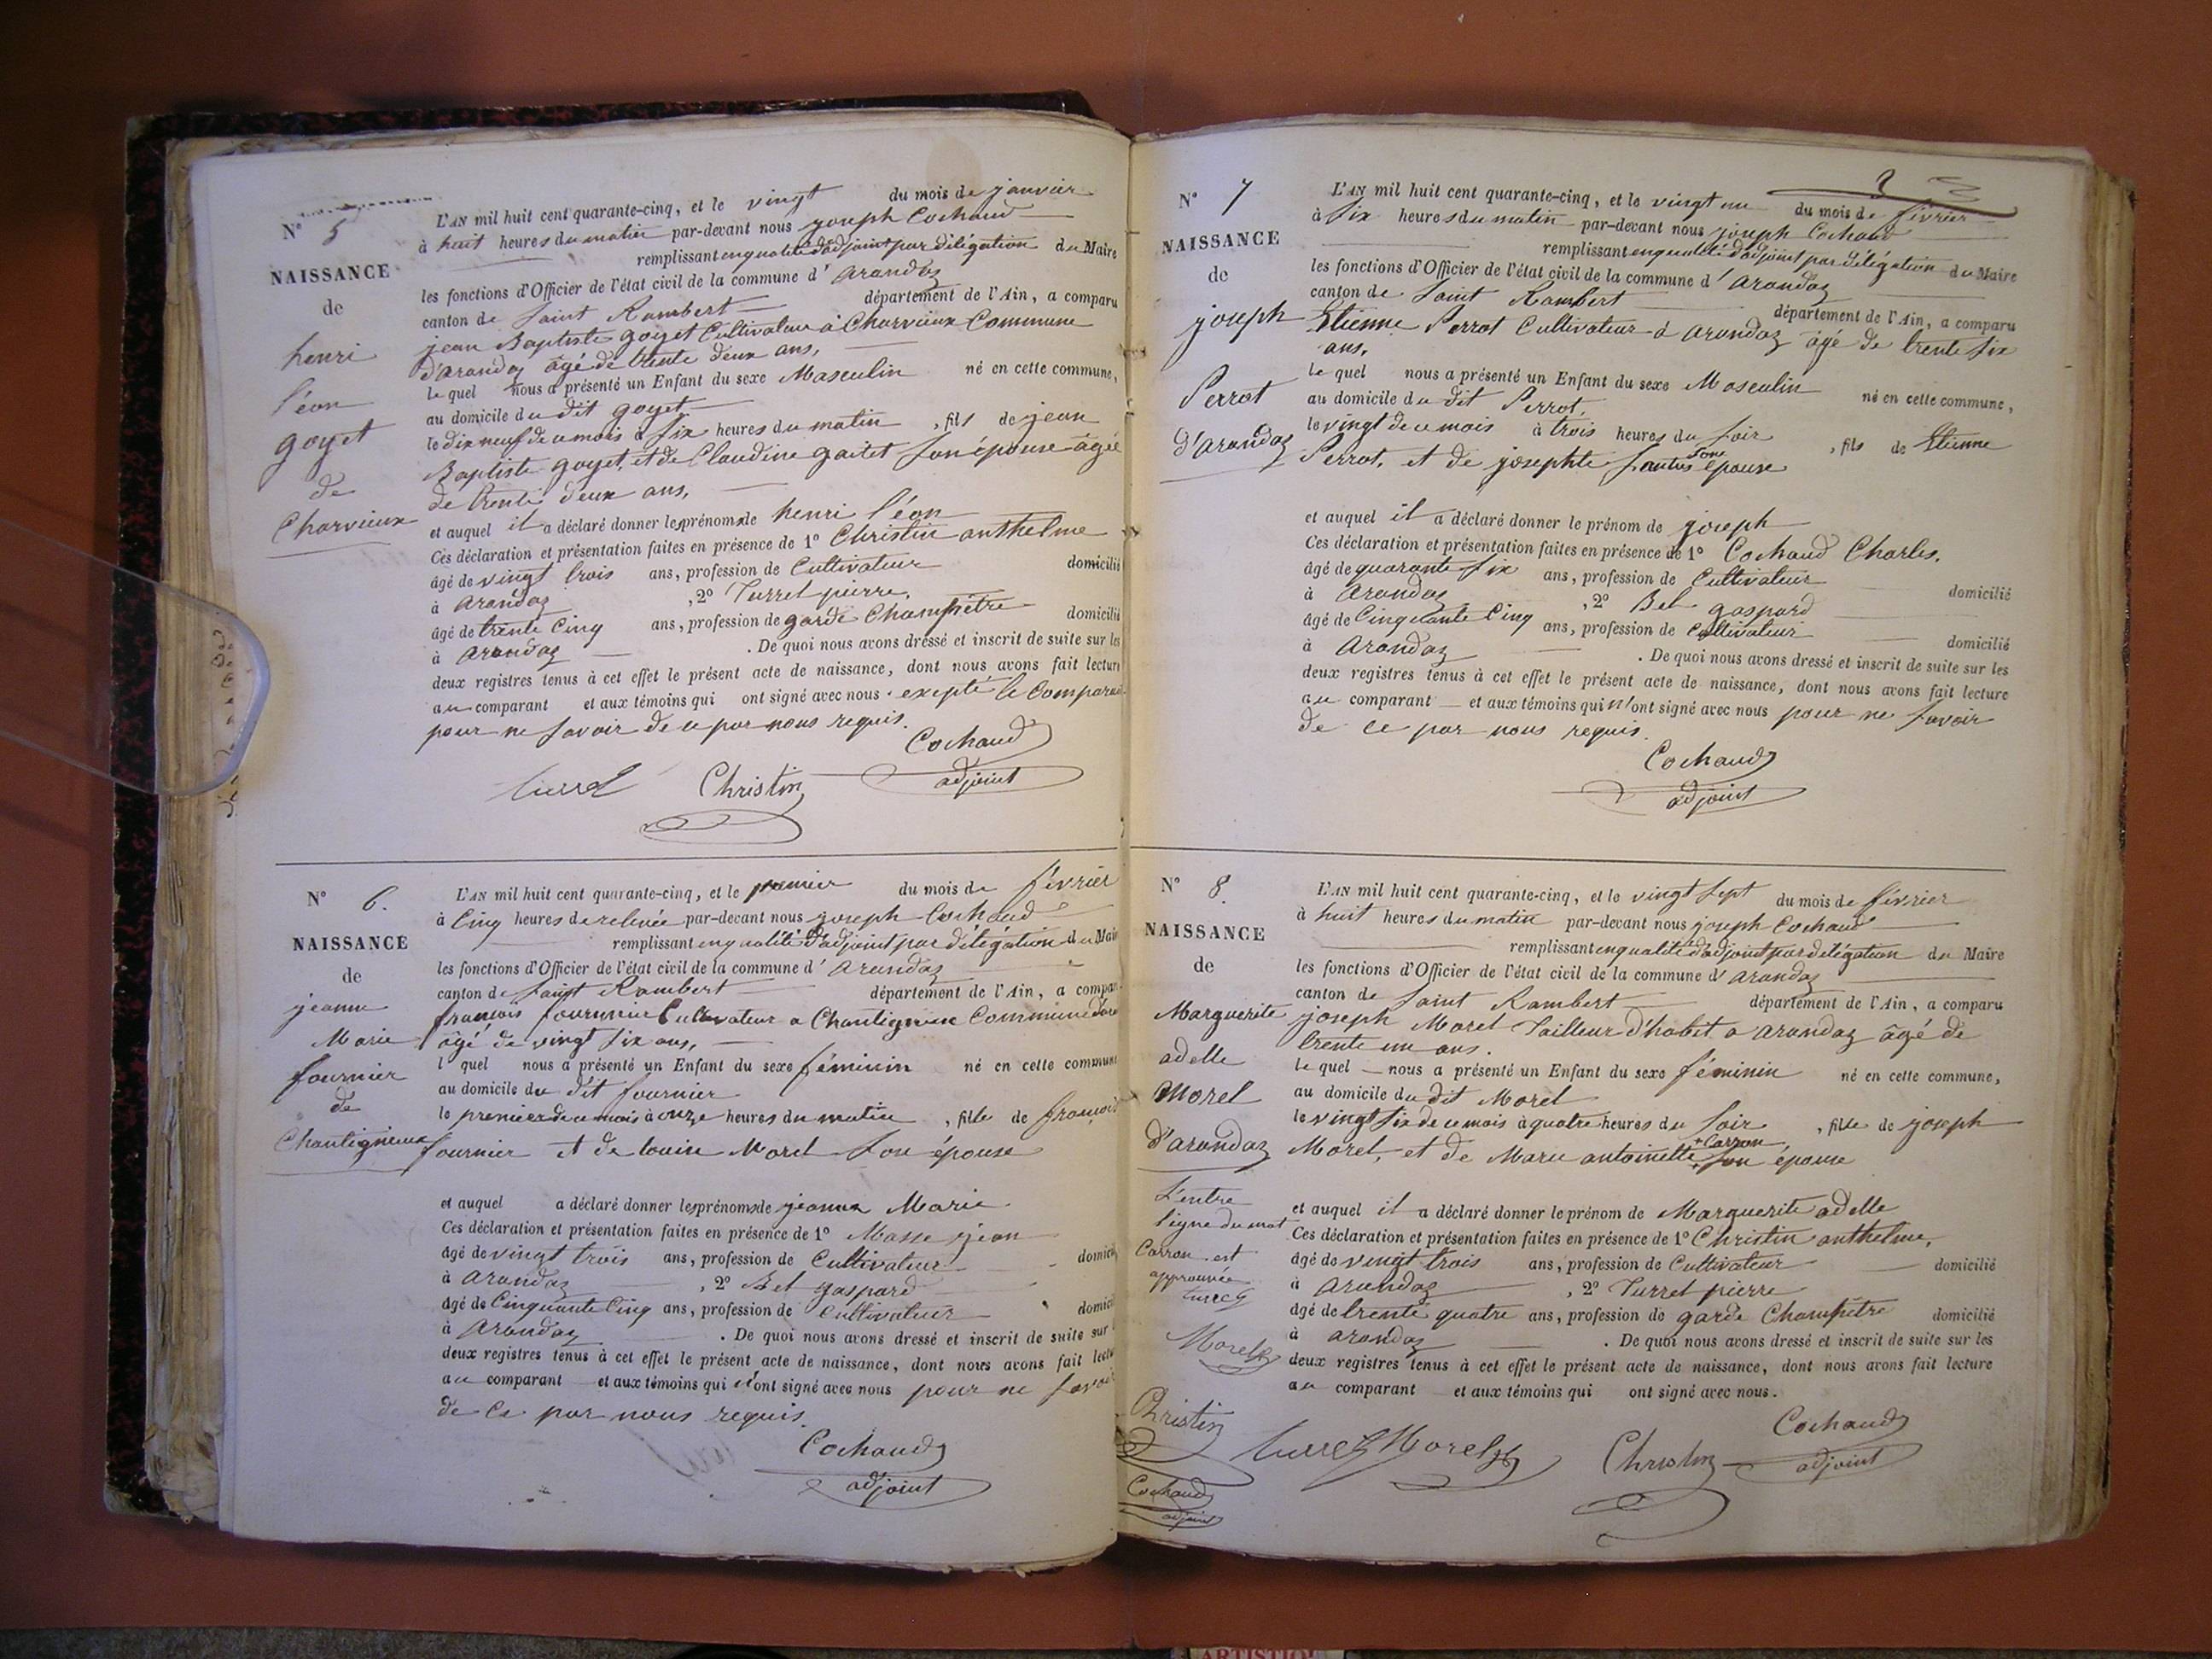 N° 5
NAISSANCE
de
henri
léon
goyet
de
Charvieux
L'AN mil huit cent quarante-cinq, et le vingt du mois de janvier
à huit heures du matin par-devant nous joseph Cochaud
remplissant en qualité d'adjoint par délégation du Maire
les fonctions d'Officier de l'état civil de la commune d'arandaz
canton de Saint Rambert département de l'Ain, a comparu
jean Baptiste goyet Cultivateur à Charvieux Commune
d'arandaz âgé de trente deux ans,
le quel nous a présenté un Enfant du sexe Masculin né en cette commune,
au domicile du dit goyet
le dix neuf de ce mois à six heures du matin , fils de jean
Baptiste goyet, et de Claudine gaitet son épouse âgée
de trente deux ans,
et auquel il a déclaré donner les prénoms de henri léon
Ces déclaration et présentation faites en présence de 1° Christin anthelme
âgé de vingt trois ans, profession de Cultivateur domicilié
à arandaz , 2° Turrel pierre,
âgé de trente cinq ans, profession de garde Champêtre domicilié
à arandaz . De quoi nous avons dressé et inscrit de suite sur les
deux registres tenus à cet effet le présent acte de naissance, dont nous avons fait lecture
au comparant et aux témoins qui ont signé avec nous. excepté le Comparant
pour ne savoir de ce par nous requis.
Cochaud
turrel Christin adjoint
N° 6.
NAISSANCE
de
jeanne
Marie
fournier
de
Chantigneux
L'AN mil huit cent quarante-cinq, et le premier du mois de février
à Cinq heures de relevée par-devant nous joseph Cochaud
remplissant en qualité d'adjoint par délégation du Maire
les fonctions d'Officier de l'état civil de la commune d'arandaz
canton de Saint Rambert département de l'Ain, a comparu
françois fournier Cultivateur a Chantigneux Commune
âgé de vingt six ans,
l quel nous a présenté un Enfant du sexe féminin né en cette commune
au domicile du dit fournier
le premier de ce mois à onze heures du matin , fille de françois
fournier et de louise Morel son épouse
et auquel a déclaré donner les prénoms de jeanne Marie
Ces déclaration et présentation faites en présence de 1° Masse jean
âgé de vingt trois ans, profession de Cultivateur domicilié
à arandaz , 2° Bel gaspard
âgé de Cinquante Cinq ans, profession de Cultivateur domicilié
à arandaz . De quoi nous avons dressé et inscrit de suite sur
deux registres tenus à cet effet le présent acte de naissance, dont nous avons fait lecture
au comparant et aux témoins qui n'ont signé avec nous pour ne savoir
de ce par nous requis.
Cochaud
adjoint
N° 7
NAISSANCE
de
joseph
Perrot
d'arandaz
L'AN mil huit cent quarante-cinq, et le vingt un du mois de février
à six heures du matin par-devant nous joseph Cochaud
remplissant en qualité d'adjoint par délégation du Maire
les fonctions d'Officier de l'état civil de la commune d'arandaz
canton de Saint Rambert département de l'Ain, a comparu
Etienne Perrot Cultivateur à arandaz âgé de trente six
ans.
le quel nous a présenté un Enfant du sexe Masculin né en cette commune,
au domicile du dit Perrot,
le vingt de ce mois à trois heures du soir , fils de Etienne
Perrot, et de josephte épouse
et auquel il a déclaré donner le prénom de joseph
Ces déclaration et présentation faites en présence de 1° Cochaud Charles,
âgé de quarante six ans, profession de Cultivateur domicilié
à arandaz , 2° Bel gaspard
âgé de Cinquante Cinq ans, profession de Cultivateur domicilié
à arandaz . De quoi nous avons dressé et inscrit de suite sur les
deux registres tenus à cet effet le présent acte de naissance, dont nous avons fait lecture
au comparant et aux témoins qui n'ont signé avec nous pour ne savoir
de ce par nous requis.
Cochaud
adjoint
N° 8.
NAISSANCE
de
Marguerite
adelle
Morel
d'arandaz
L'entre
ligne du mot
Carron est
approuvée
turrel
Morel
Christin
Cochaud
adjoint
L'AN mil huit cent quarante-cinq, et le vingt sept du mois de février
à huit heures du matin par-devant nous joseph Cochaud
remplissant en qualité d'adjoint par délégation du Maire
les fonctions d'Officier de l'état civil de la commune d'arandaz
canton de Saint Rambert département de l'Ain, a comparu
joseph Morel Tailleur d'habit a arandaz âgé de
trente un ans.
le quel nous a présenté un Enfant du sexe féminin né en cette commune,
au domicile du dit Morel
le vingt six de ce mois à quatre heures du soir , fille de joseph
+ Carron
Morel, et de Marie antoinette + son épouse
et auquel il a déclaré donner le prénom de Marguerite adelle
Ces déclaration et présentation faites en présence de 1° Christin anthelme,
âgé de vingt trois ans, profession de Cultivateur domicilié
à arandaz , 2° Turrel pierre
âgé de trente quatre ans, profession de garde Champêtre domicilié
à arandaz . De quoi nous avons dressé et inscrit de suite sur les
deux registres tenus à cet effet le présent acte de naissance, dont nous avons fait lecture
au comparant et aux témoins qui ont signé avec nous.
Cochaud
turrel Morel Christin adjoint